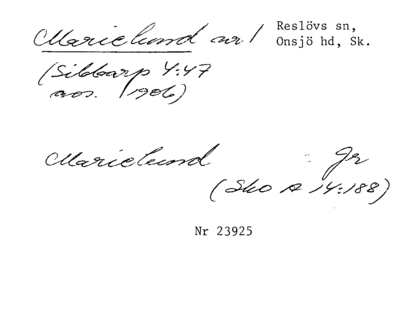 Marielund nr 1
Reslövs sn,
Onsjö hd, Sk.
(Sibbarp 4:47
avs. 1906)
Marielund Gr
(Sko A 14:188)
Nr 23925